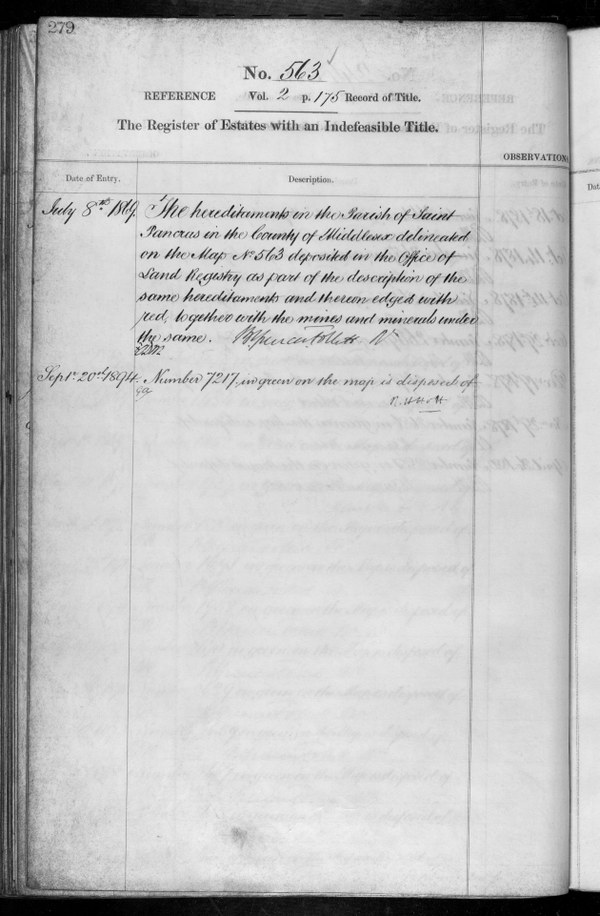 279
No. 563
REFERENCE Vol. 2 p. 175 Record of Title.
The Register of Estates with an Indefeasible Title.
OBSERVATION
Date of Entry. Description.
July 8th. 1869. The hereditaments in the Parish of Saint
Pancras in the County of Middlesex delineated
on the Map No 563 deposited in the Office of
Land Registry as part of the description of the
same hereditaments and thereon edged with
red, together with the mines and minerals under
the same. Follett
Sept. 20th 1894. Number 7217, in green on the map is disposed of